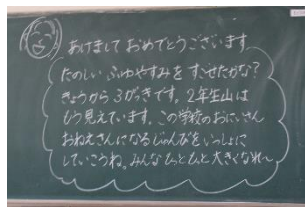 あけまして おめでとうございます
たのしい ふゆやすみを すごせたかな?
きょうから3がっきです。2年生山は
もう見えています。この学校のおにいさん
おねえさんになるじゅんびをいっしょに
していこうね。みんなもっともっと大きくなれ〜